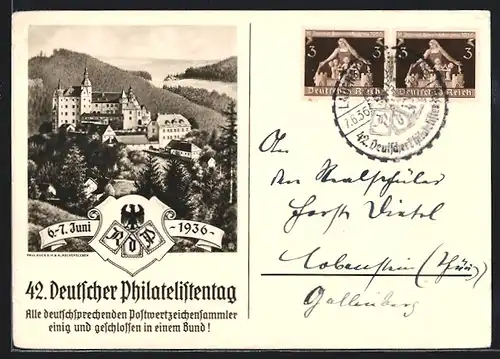 6.-7. Juni
-1936-
R d P
42. Deutscher Philatelistentag
Alle deutschsprechenden Postwertzeichensammler
einig und geschlossen in einem Bund!
3
3
Deutsches Reich
Deutsches Reich
7.6.36
42. Deutscher Philatelistentag
An
den Realschüler
Horst Dietel
Lobenstein (Thür)
Gallenberg